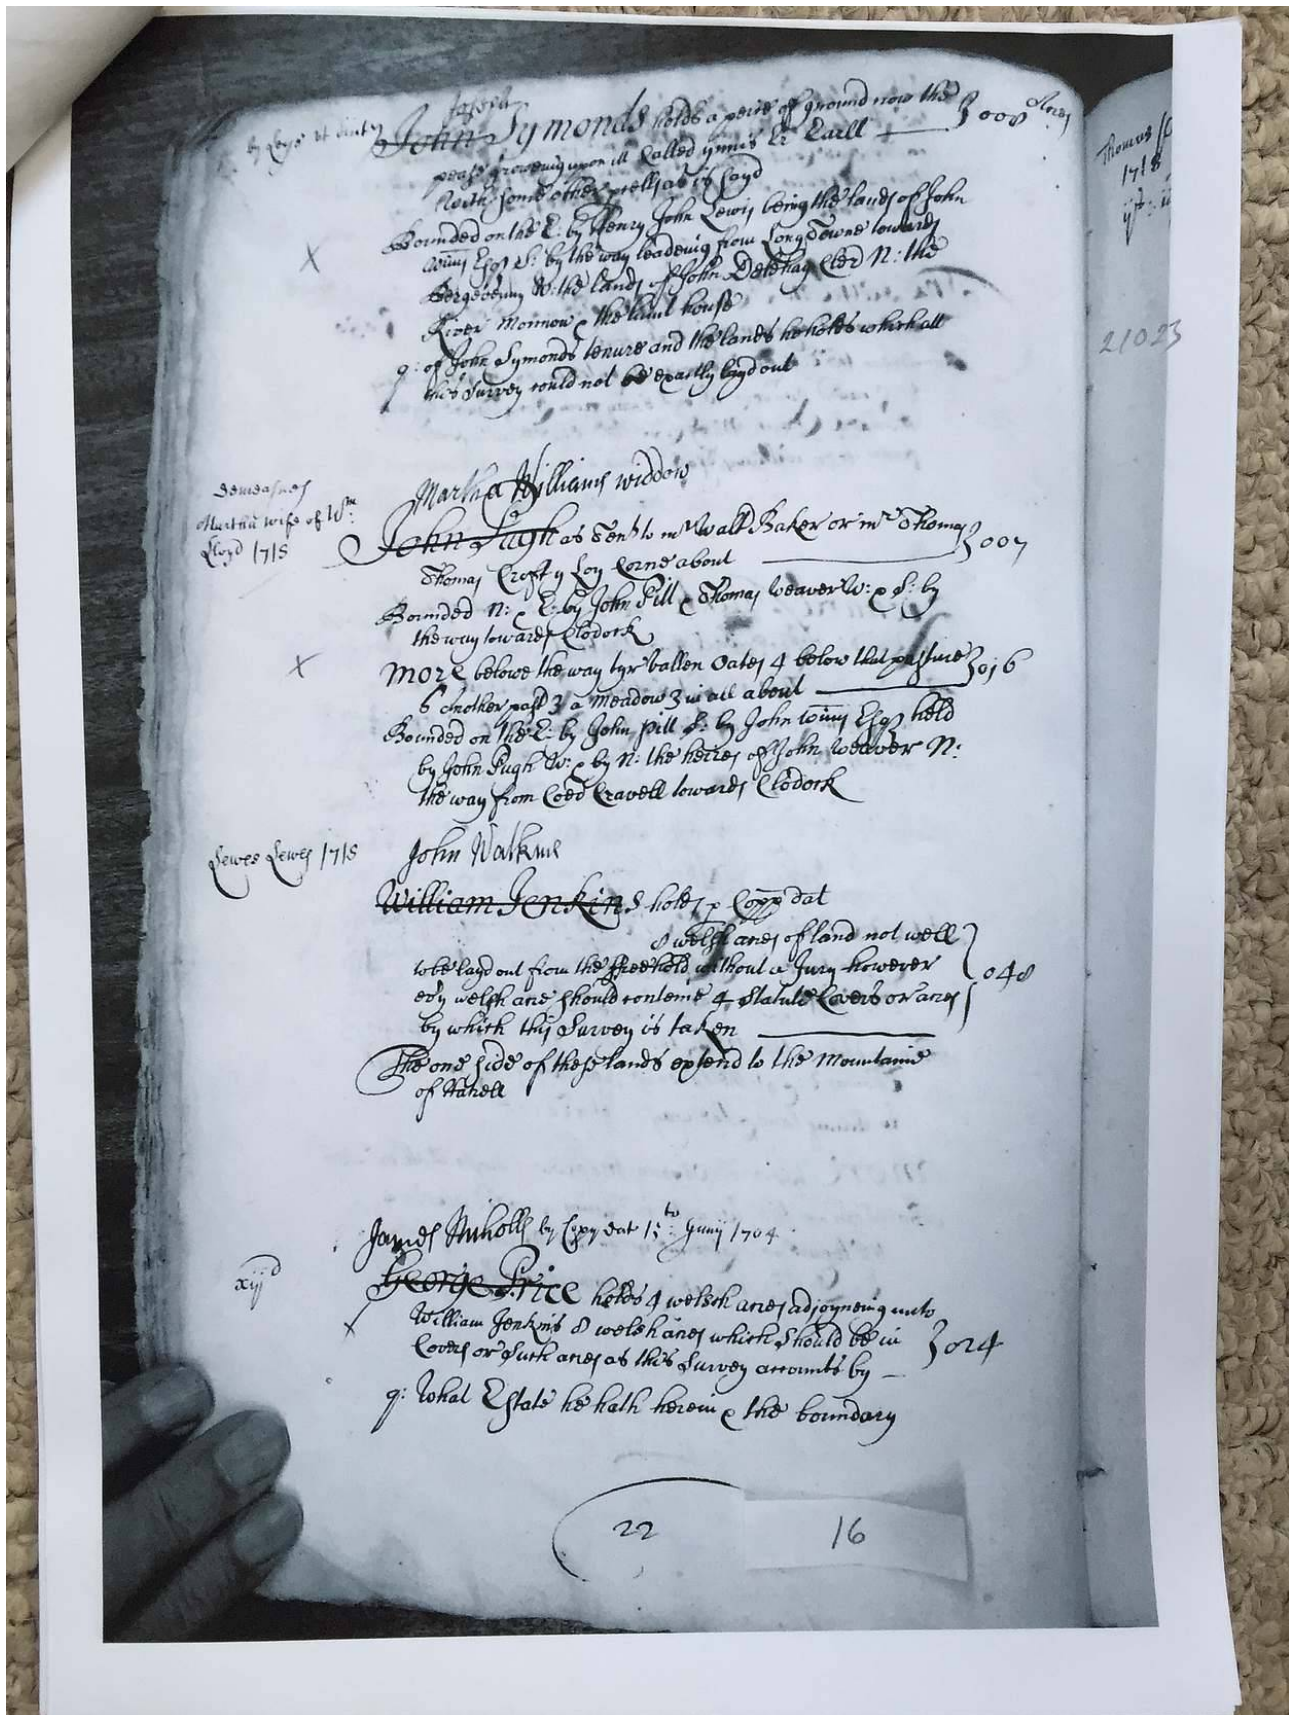 Joseph
John Symonds holds a peice of ground now the 3 008 Acres
pease groweing upon it Called ynnis Er Earll
with some other as is sayd
Bounded on the E: by Henry John Lewis being the lands of John
Esqr S: by the way leadeing from Longtowne towards
Bergevenny W: the lands of John Delehay Cler N: the
River Monnow & the house
q: of John Symonds tenure and the lands he holds which all
this Survey could not be exactly layd out
demeasnes
Martha wife of Wm
Lloyd 1718
Martha Williams widdow
John Pugh as Tent to mr Walt Baker or mr Thomas 3 007
Thomas Croft y Loy Corne about
Bounded N: & E: by John Pill & Thomas Weaver W: & S: by
the way towards Clodock
More belowe the way tyr vallen Oates 4 below that pasture 3 016
6 Another past 3 a meadow 3 in all about
Bounded on the E: by John pill S: by John Esqr held
by John Pugh W: & by N: the heires of John Weaver N:
the way from Coed Cravell towards Clodock
Lewes Lewes 1718
John Watkins
William Jenkins holds p Copp dat
8 welsh acres of land not well
to be layd out from the freehold without a Jury however
evy welsh acre should conteine 4 Statute Covers or acres 048
by which this Survey is taken
The one side of these lands extend to the Mountaine
of Hatrell
James Nicholls by Copy dat 15to Junij 1704
xijd
George Price holds 4 welsh acres adjoyneing unto
William Jenkins 8 welsh acres which should be in
Covers or such acres as this Survey accounts by 3 024
q: What Estate he hath herein & the boundary
22
16
Thomas
1718
21023